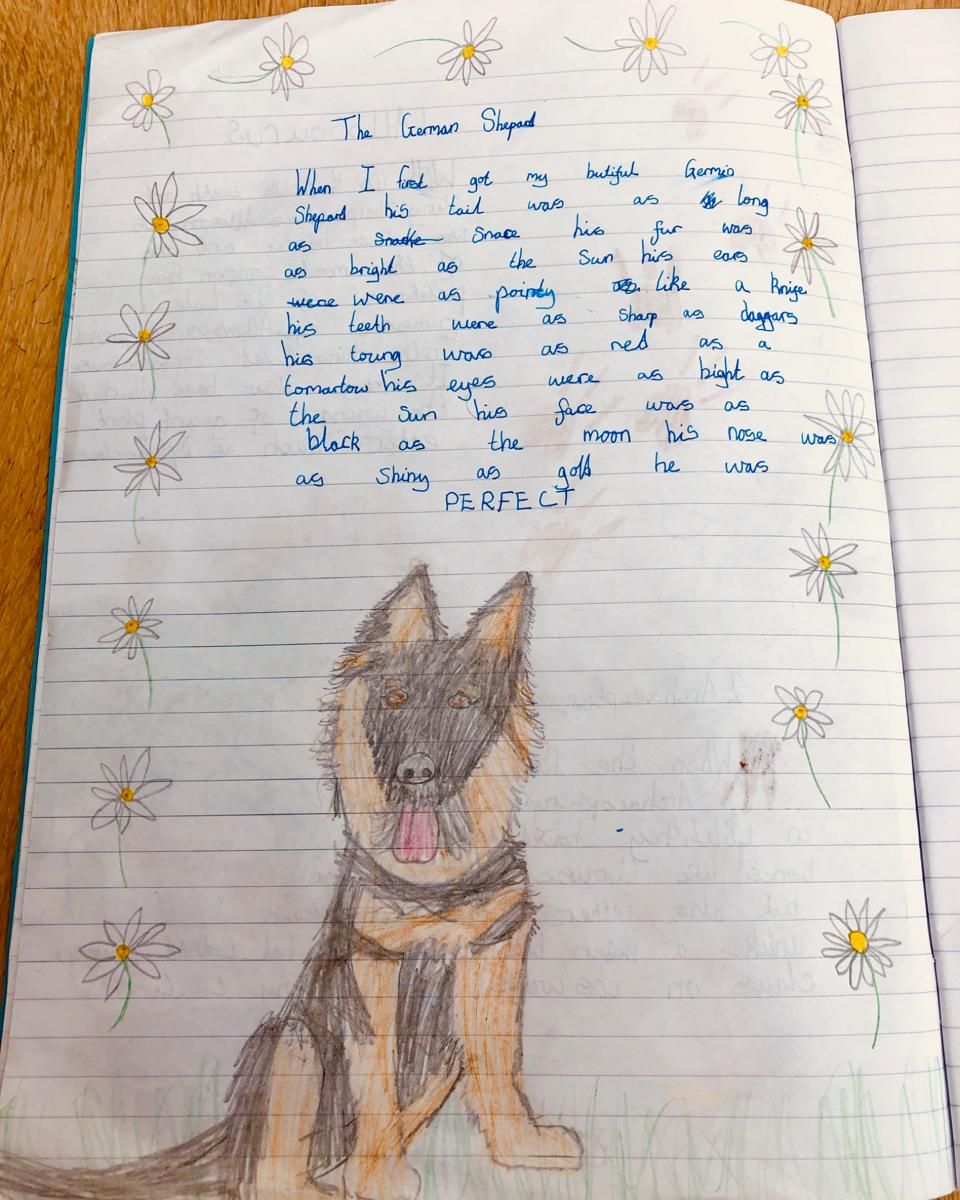 The German Shepard
When I first got my butiful Germin
Shepard his tail was as long
as Snace his fur was
as bright as the Sun his ears
were were as pointy like a knige
his teeth were as sharp as daggars
his toung was as red as a
tomartow his eyes were as bight as
the Sun his face was as
black as the moon his nose was
as Shiny as gold he was
PERFECT